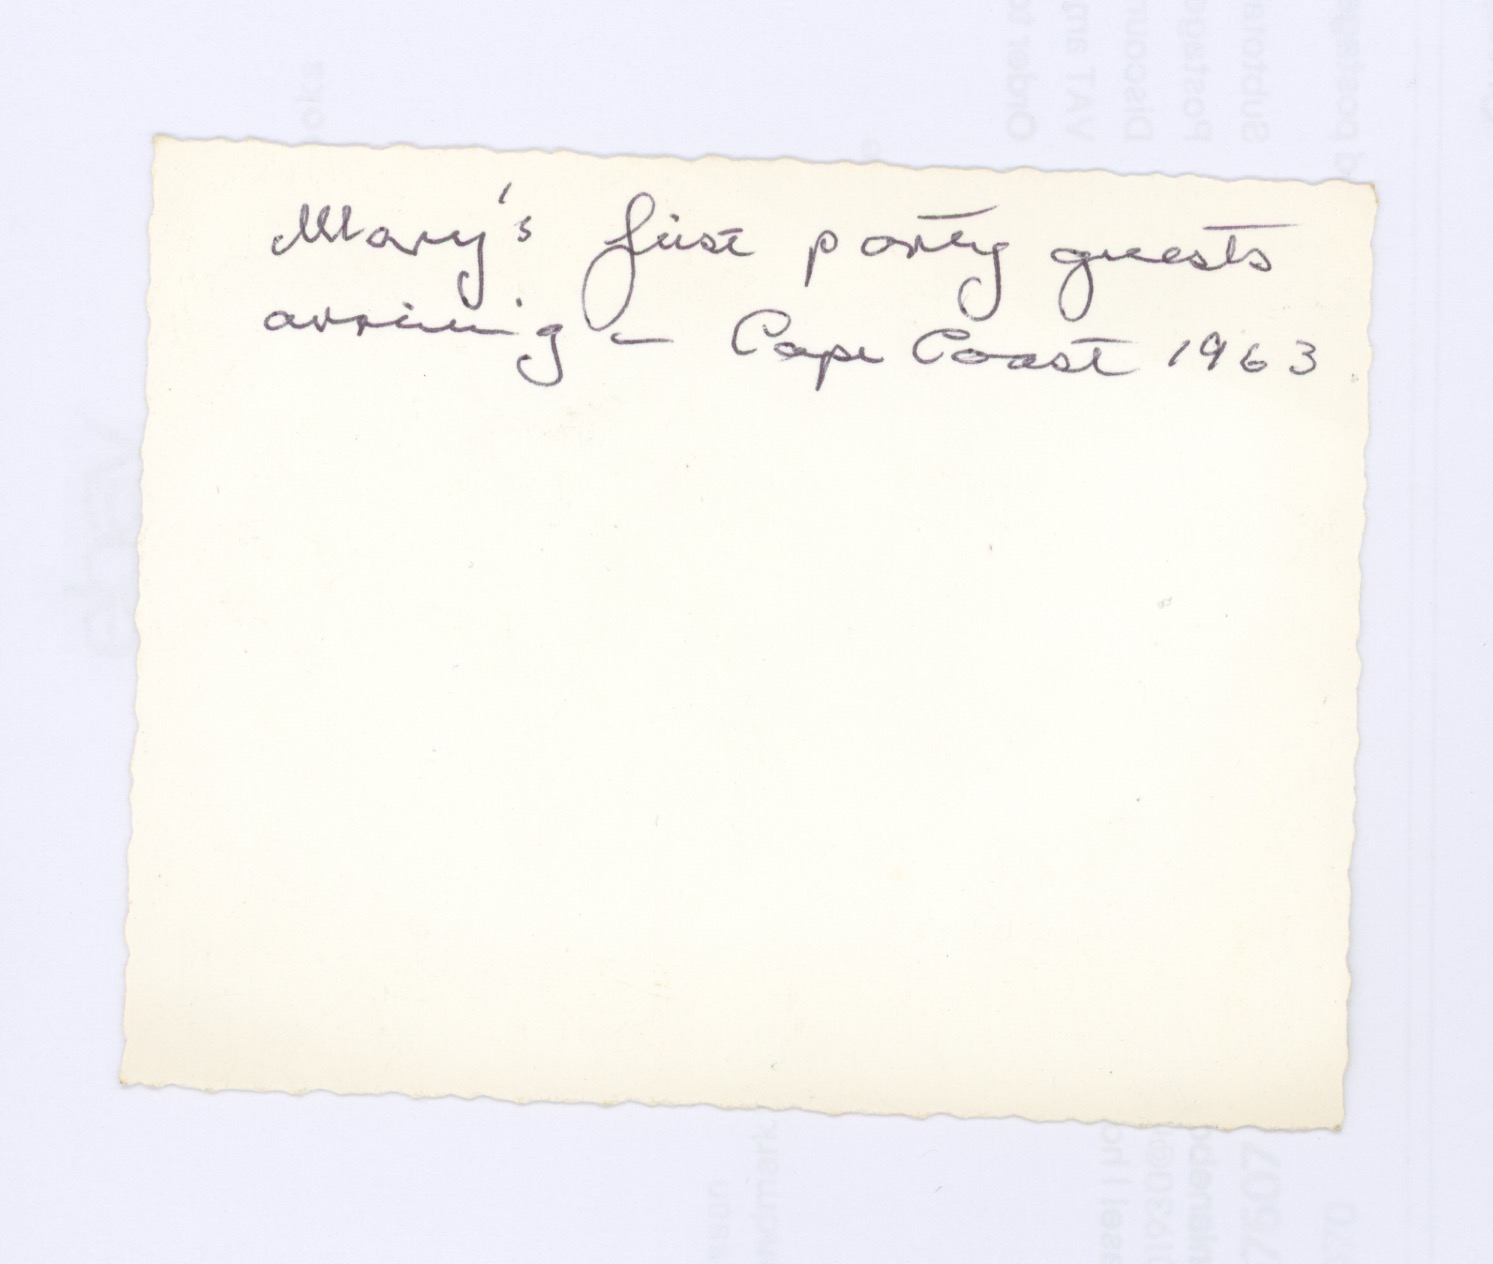 Mary's first party guests
arriving – Cape Coast 1963